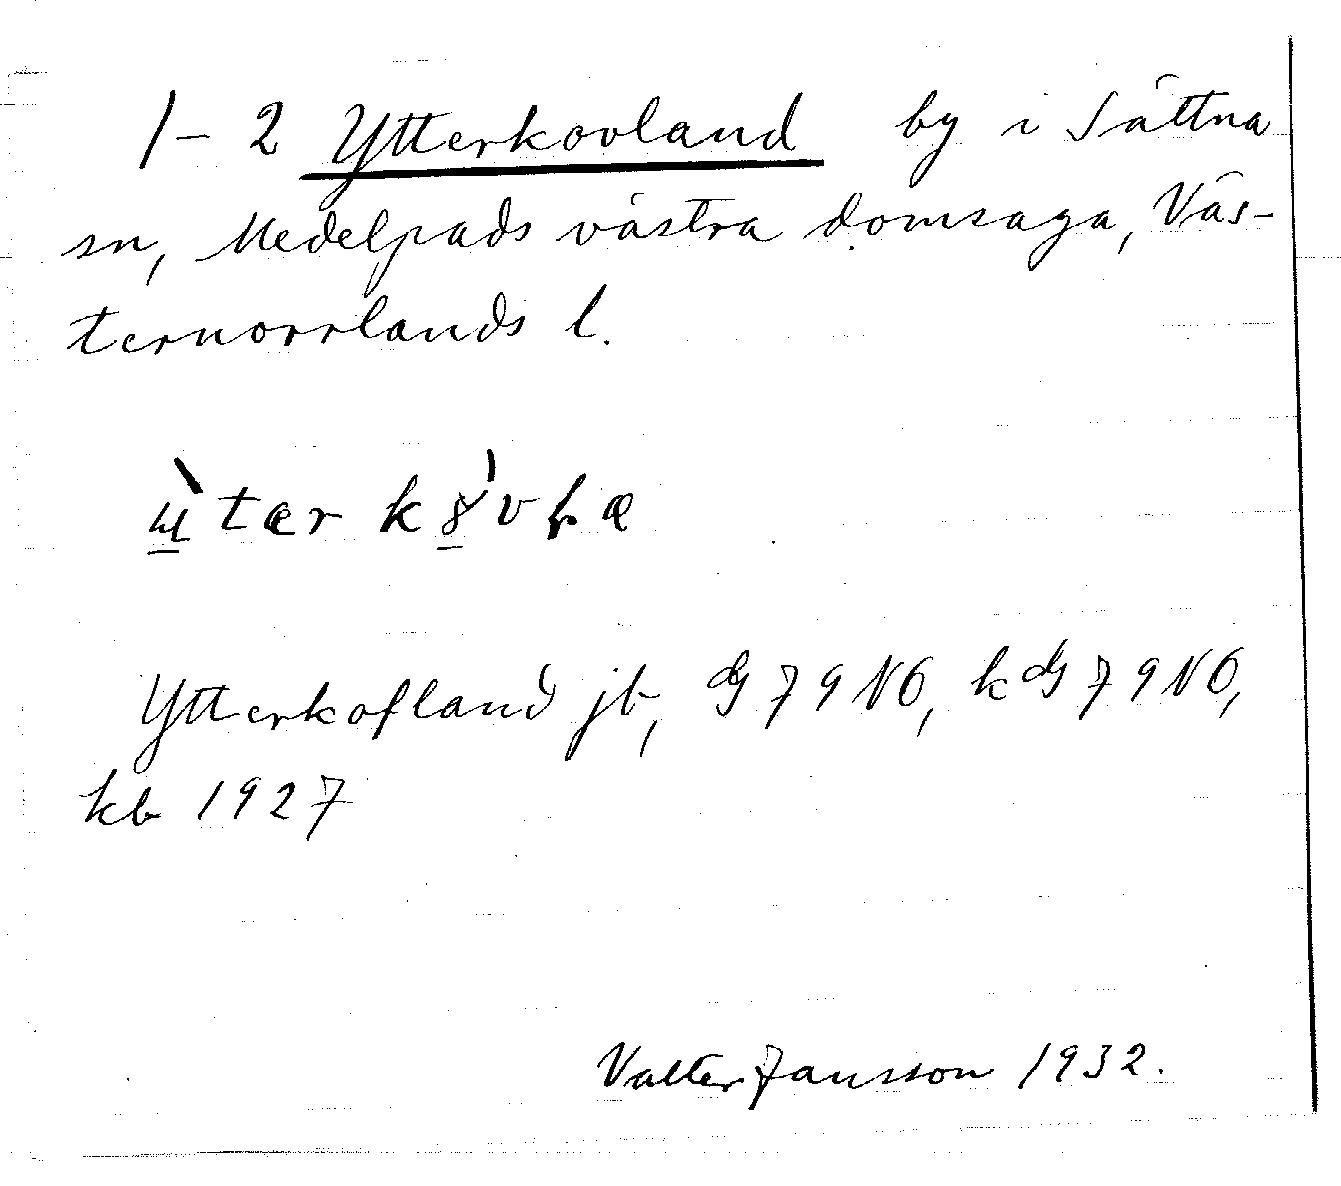 1-2 Ytterkovland by i Sättna
sn, Medelpads västra domsaga, Väs-
ternorrlands l.
Ytterkofland jb, GS 79 NO, kGS 79 NO,
kb 1927
Valter Jansson 1932.